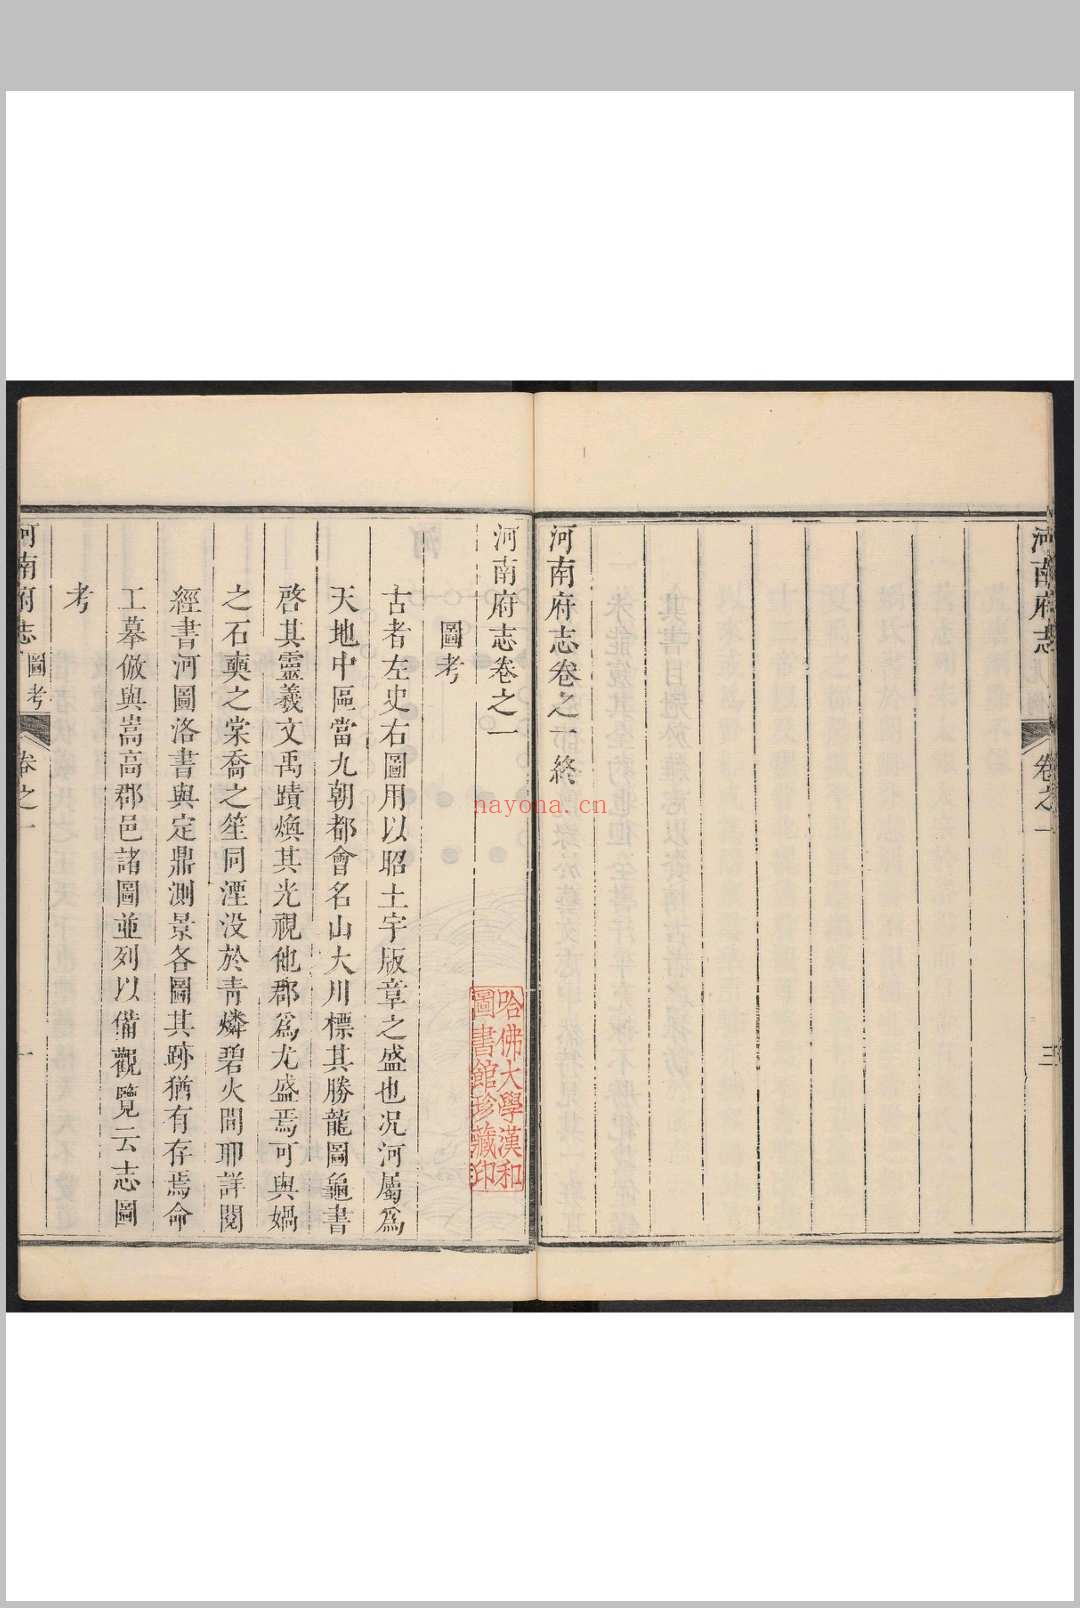 河南府志
卷之一
三
河南府志卷之一終
河南府志卷之一
圖考
古者左史右圖用以昭土宇版章之盛也况河屬爲
天地中區當九朝都會名山大川標其勝龍圖龜書
啓其靈羲文禹蹟煥其光視他郡爲尤盛焉可與媧
之石奭之棠喬之笙同湮没於青燐碧火間耶詳閱
經書河圖洛書與定鼎測景各圖其跡猶有存焉命
工摹倣與嵩高郡邑諸圖並列以備觀覽云志圖
考
河南府志
圖考
卷之一
一
哈佛大學漢和
圖書館珍藏印
nayona.cn